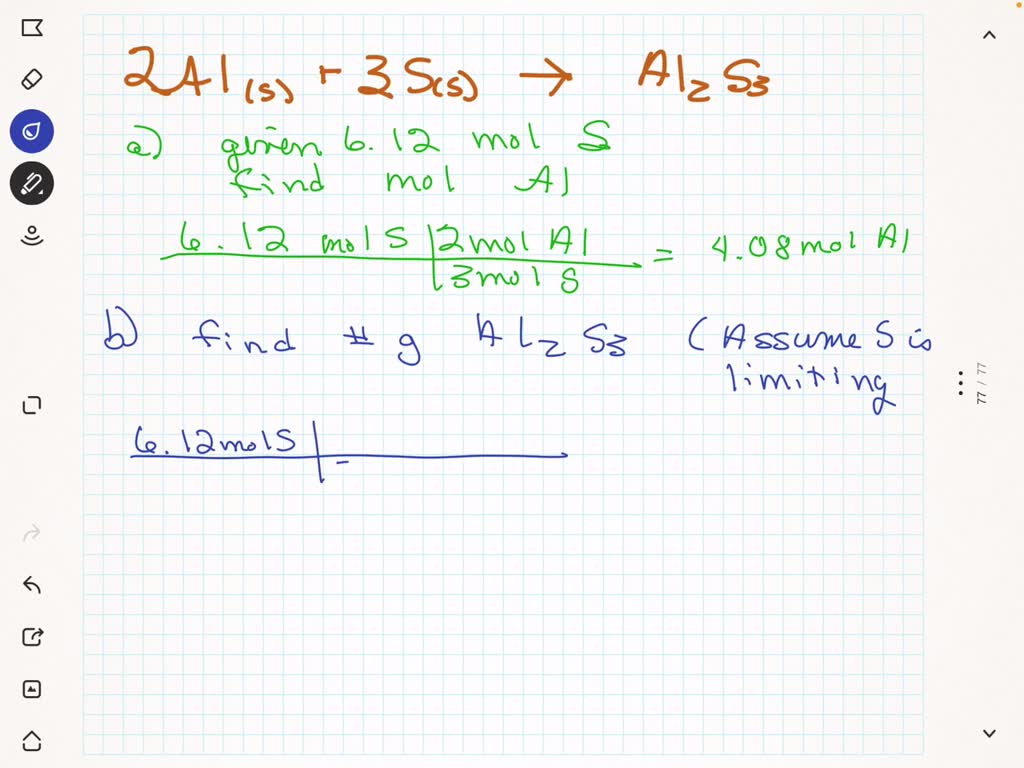 2Al(s) + 3S(s) → Al2S3
a) given 6.12 mol S
find mol Al
6.12 mol S | 2mol Al = 4.08mol Al
3mol S
b) find # g Al2S3 (Assume S is
limiting
6.12molS
77 / 77